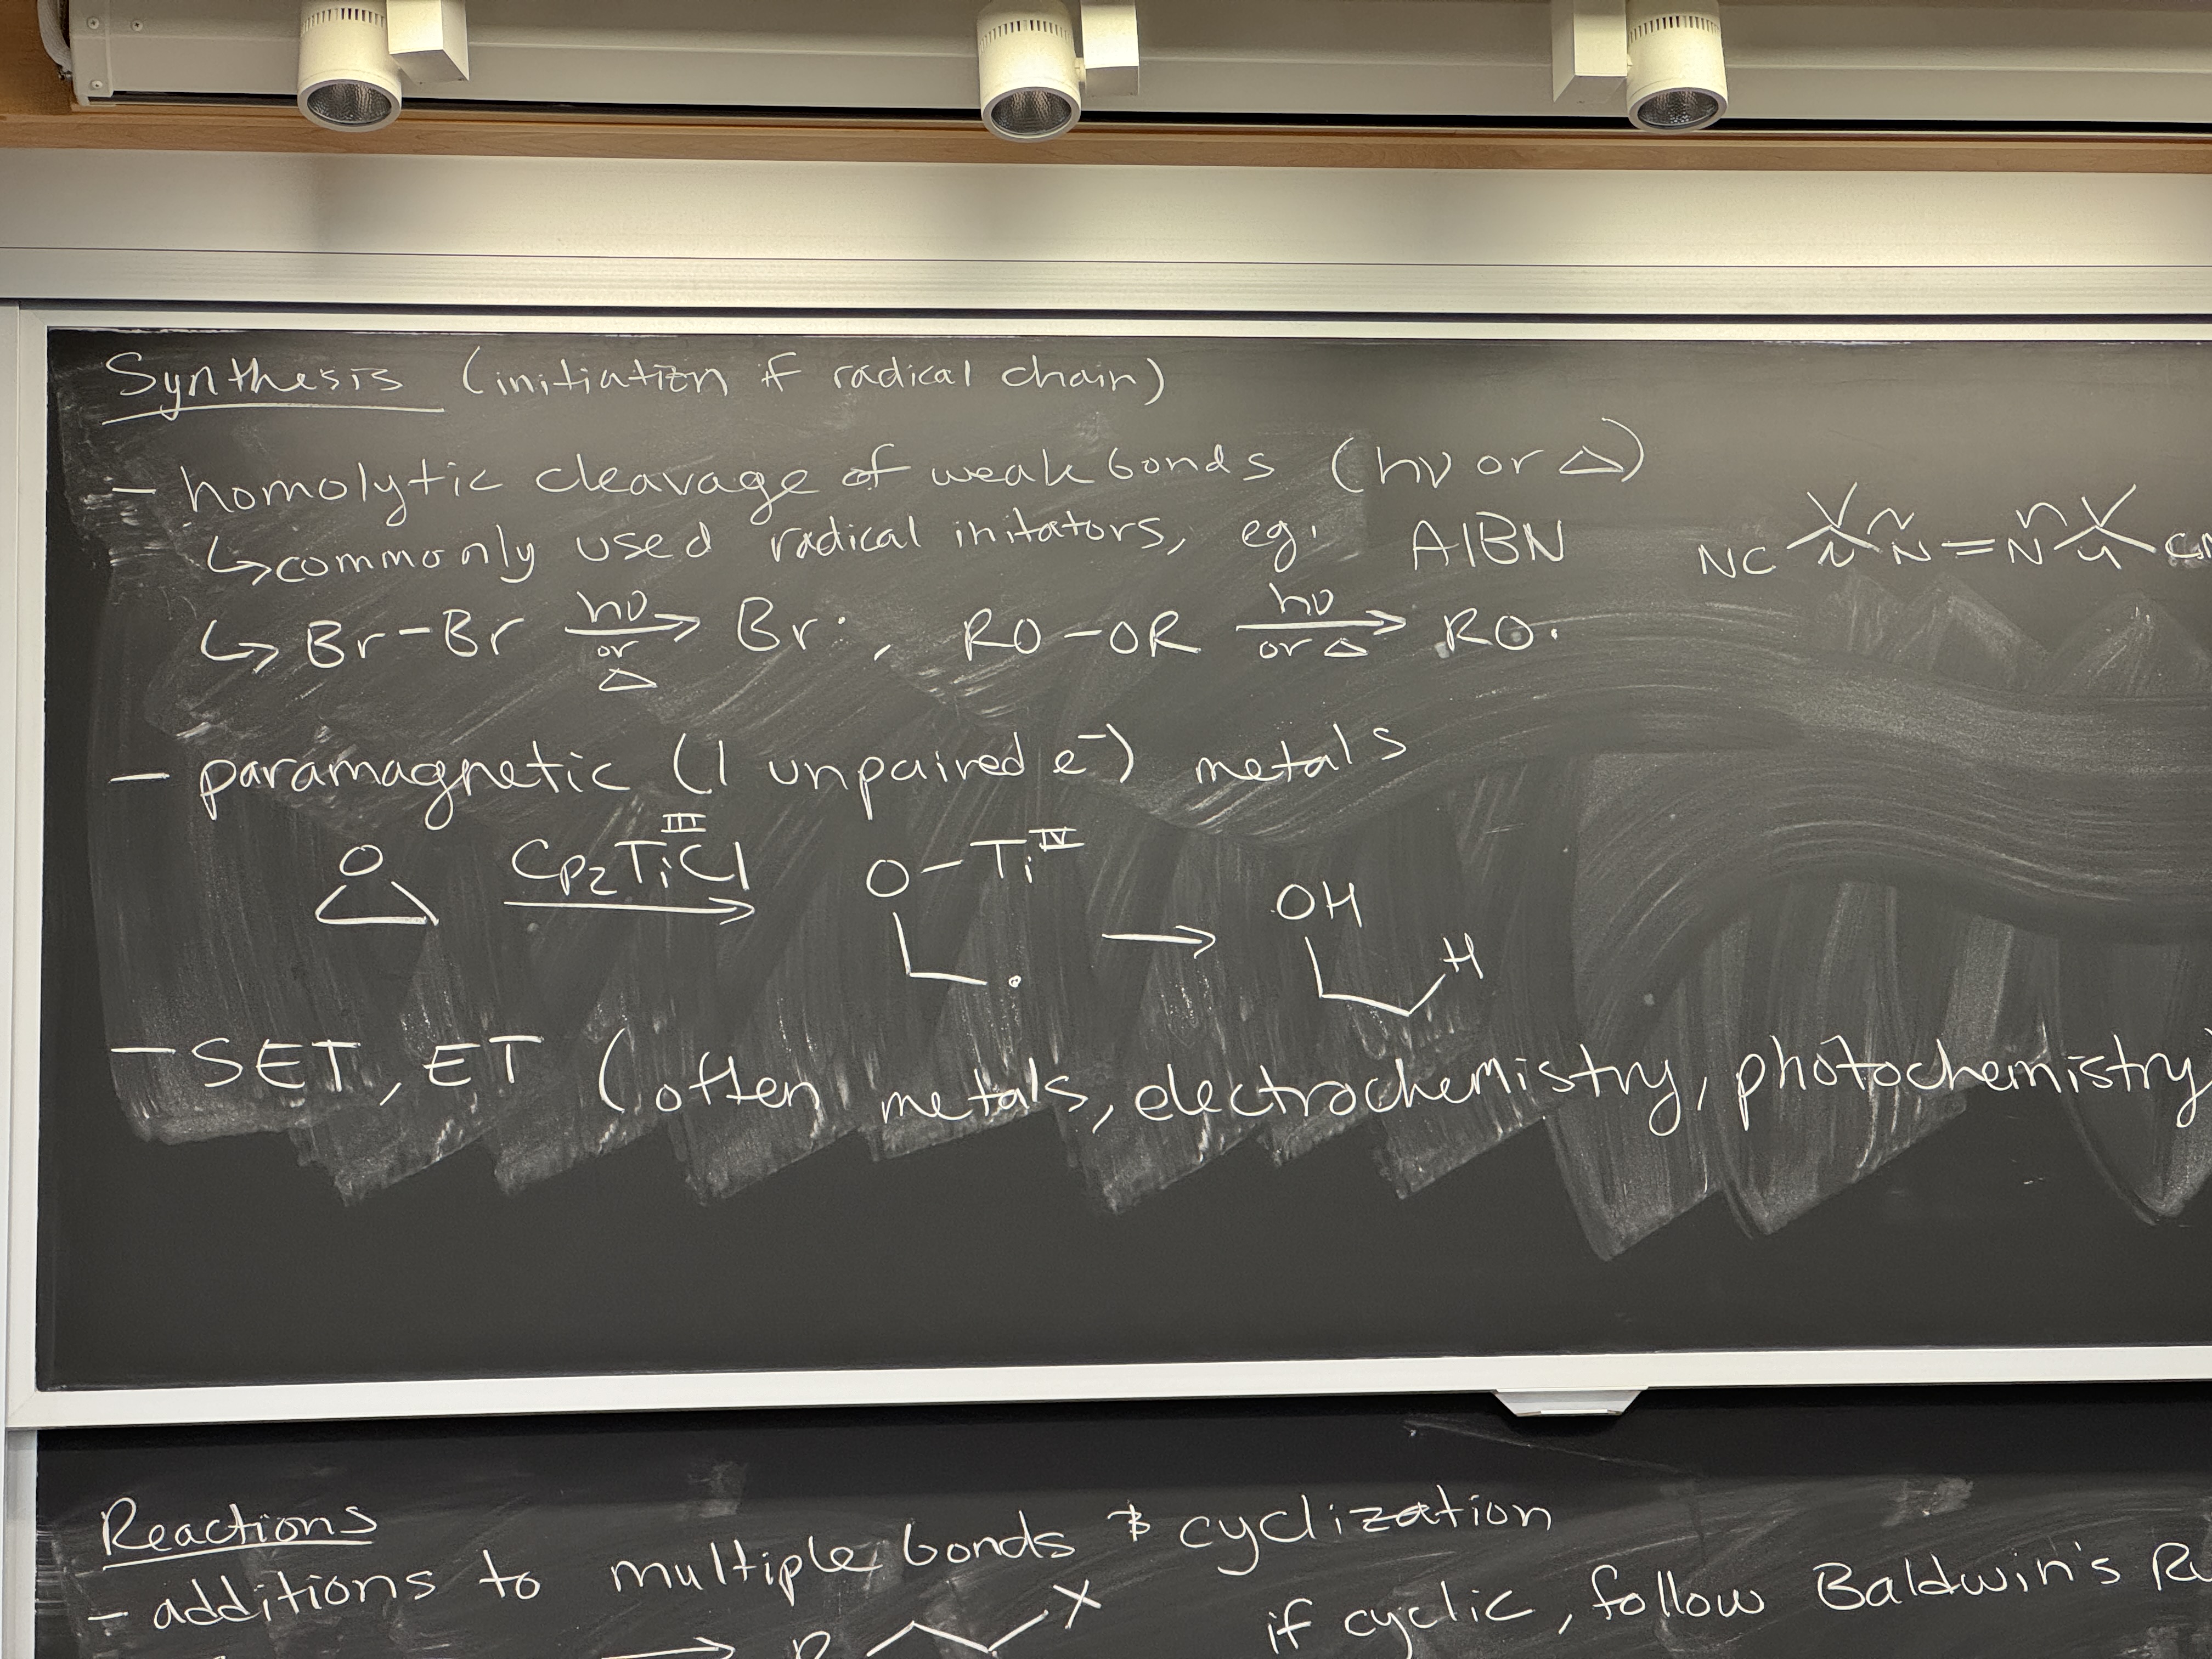 Synthesis (initiation if radical chain)
- homolytic cleavage of weak bonds (hν or Δ)
↳ commonly used radical initators, eg. AIBN
NC N=N CN
↳ Br-Br hν or Δ → Br· , RO-OR hν or Δ → RO·
- paramagnetic (1 unpaired e⁻) metals
O Cp₂TiᴵᴵᴵCl → O-Tiᴵⱽ · → OH H
- SET, ET (often metals, electrochemistry, photochemistry)
Reactions
- additions to multiple bonds & cyclization
→ R X if cyclic, follow Baldwin's